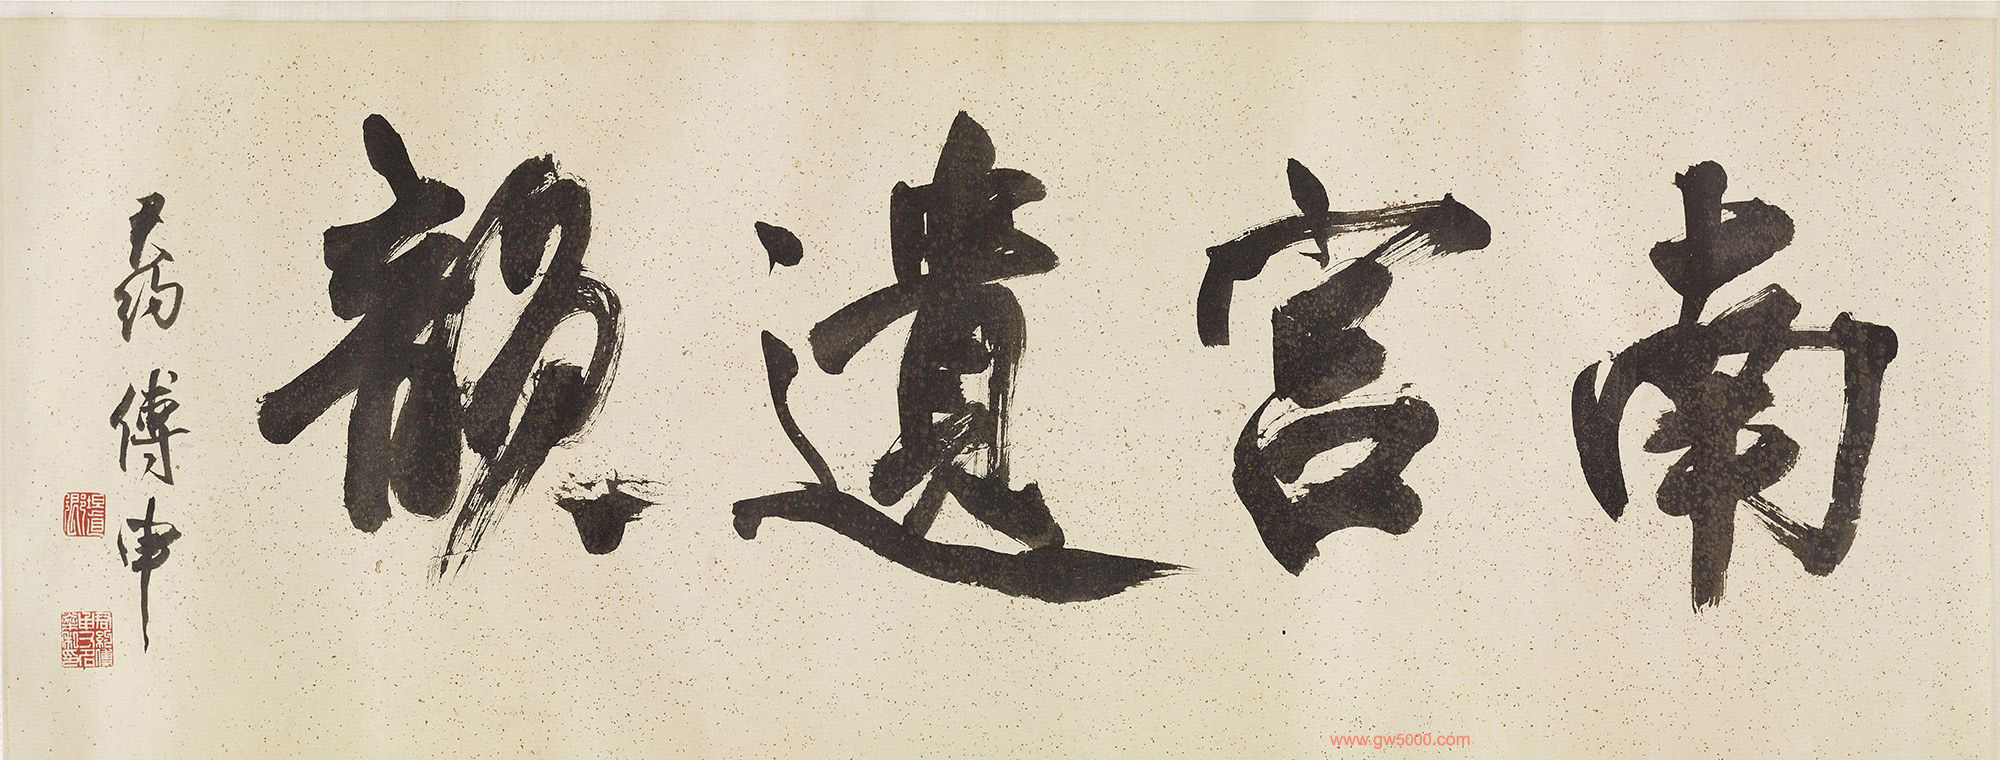 南宮遺韻
君約傅申
www.gw5000.com